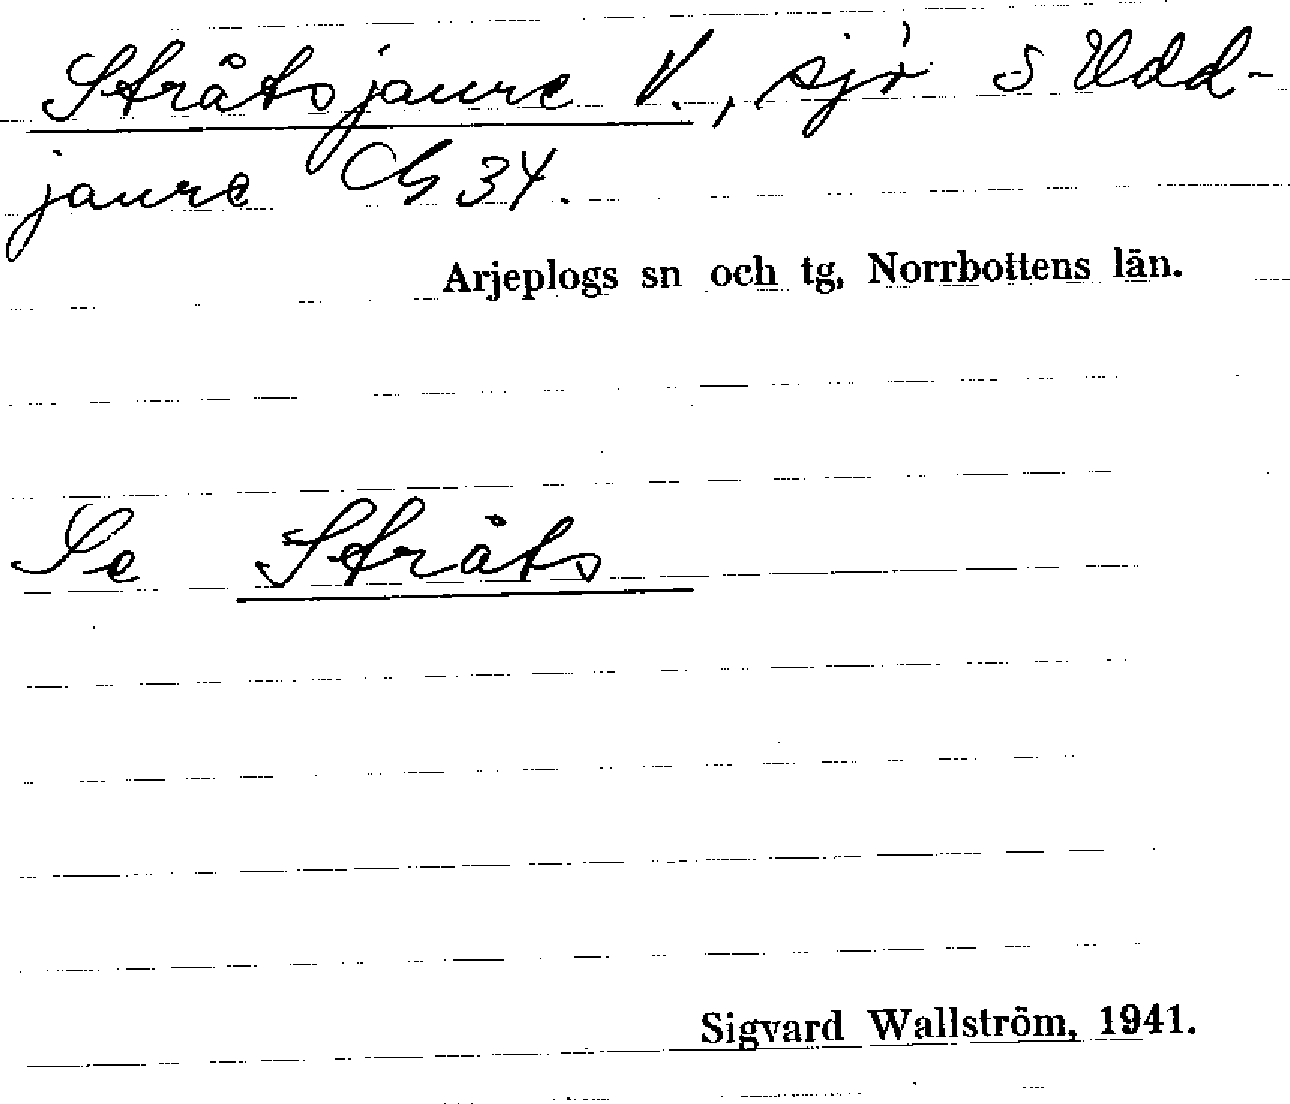 Stråtsjaure V., sjö S Udd-
jaure Gb 34.
Arjeplogs sn och tg, Norrbottens län.
Se Stråts
Sigvard Wallström, 1941.